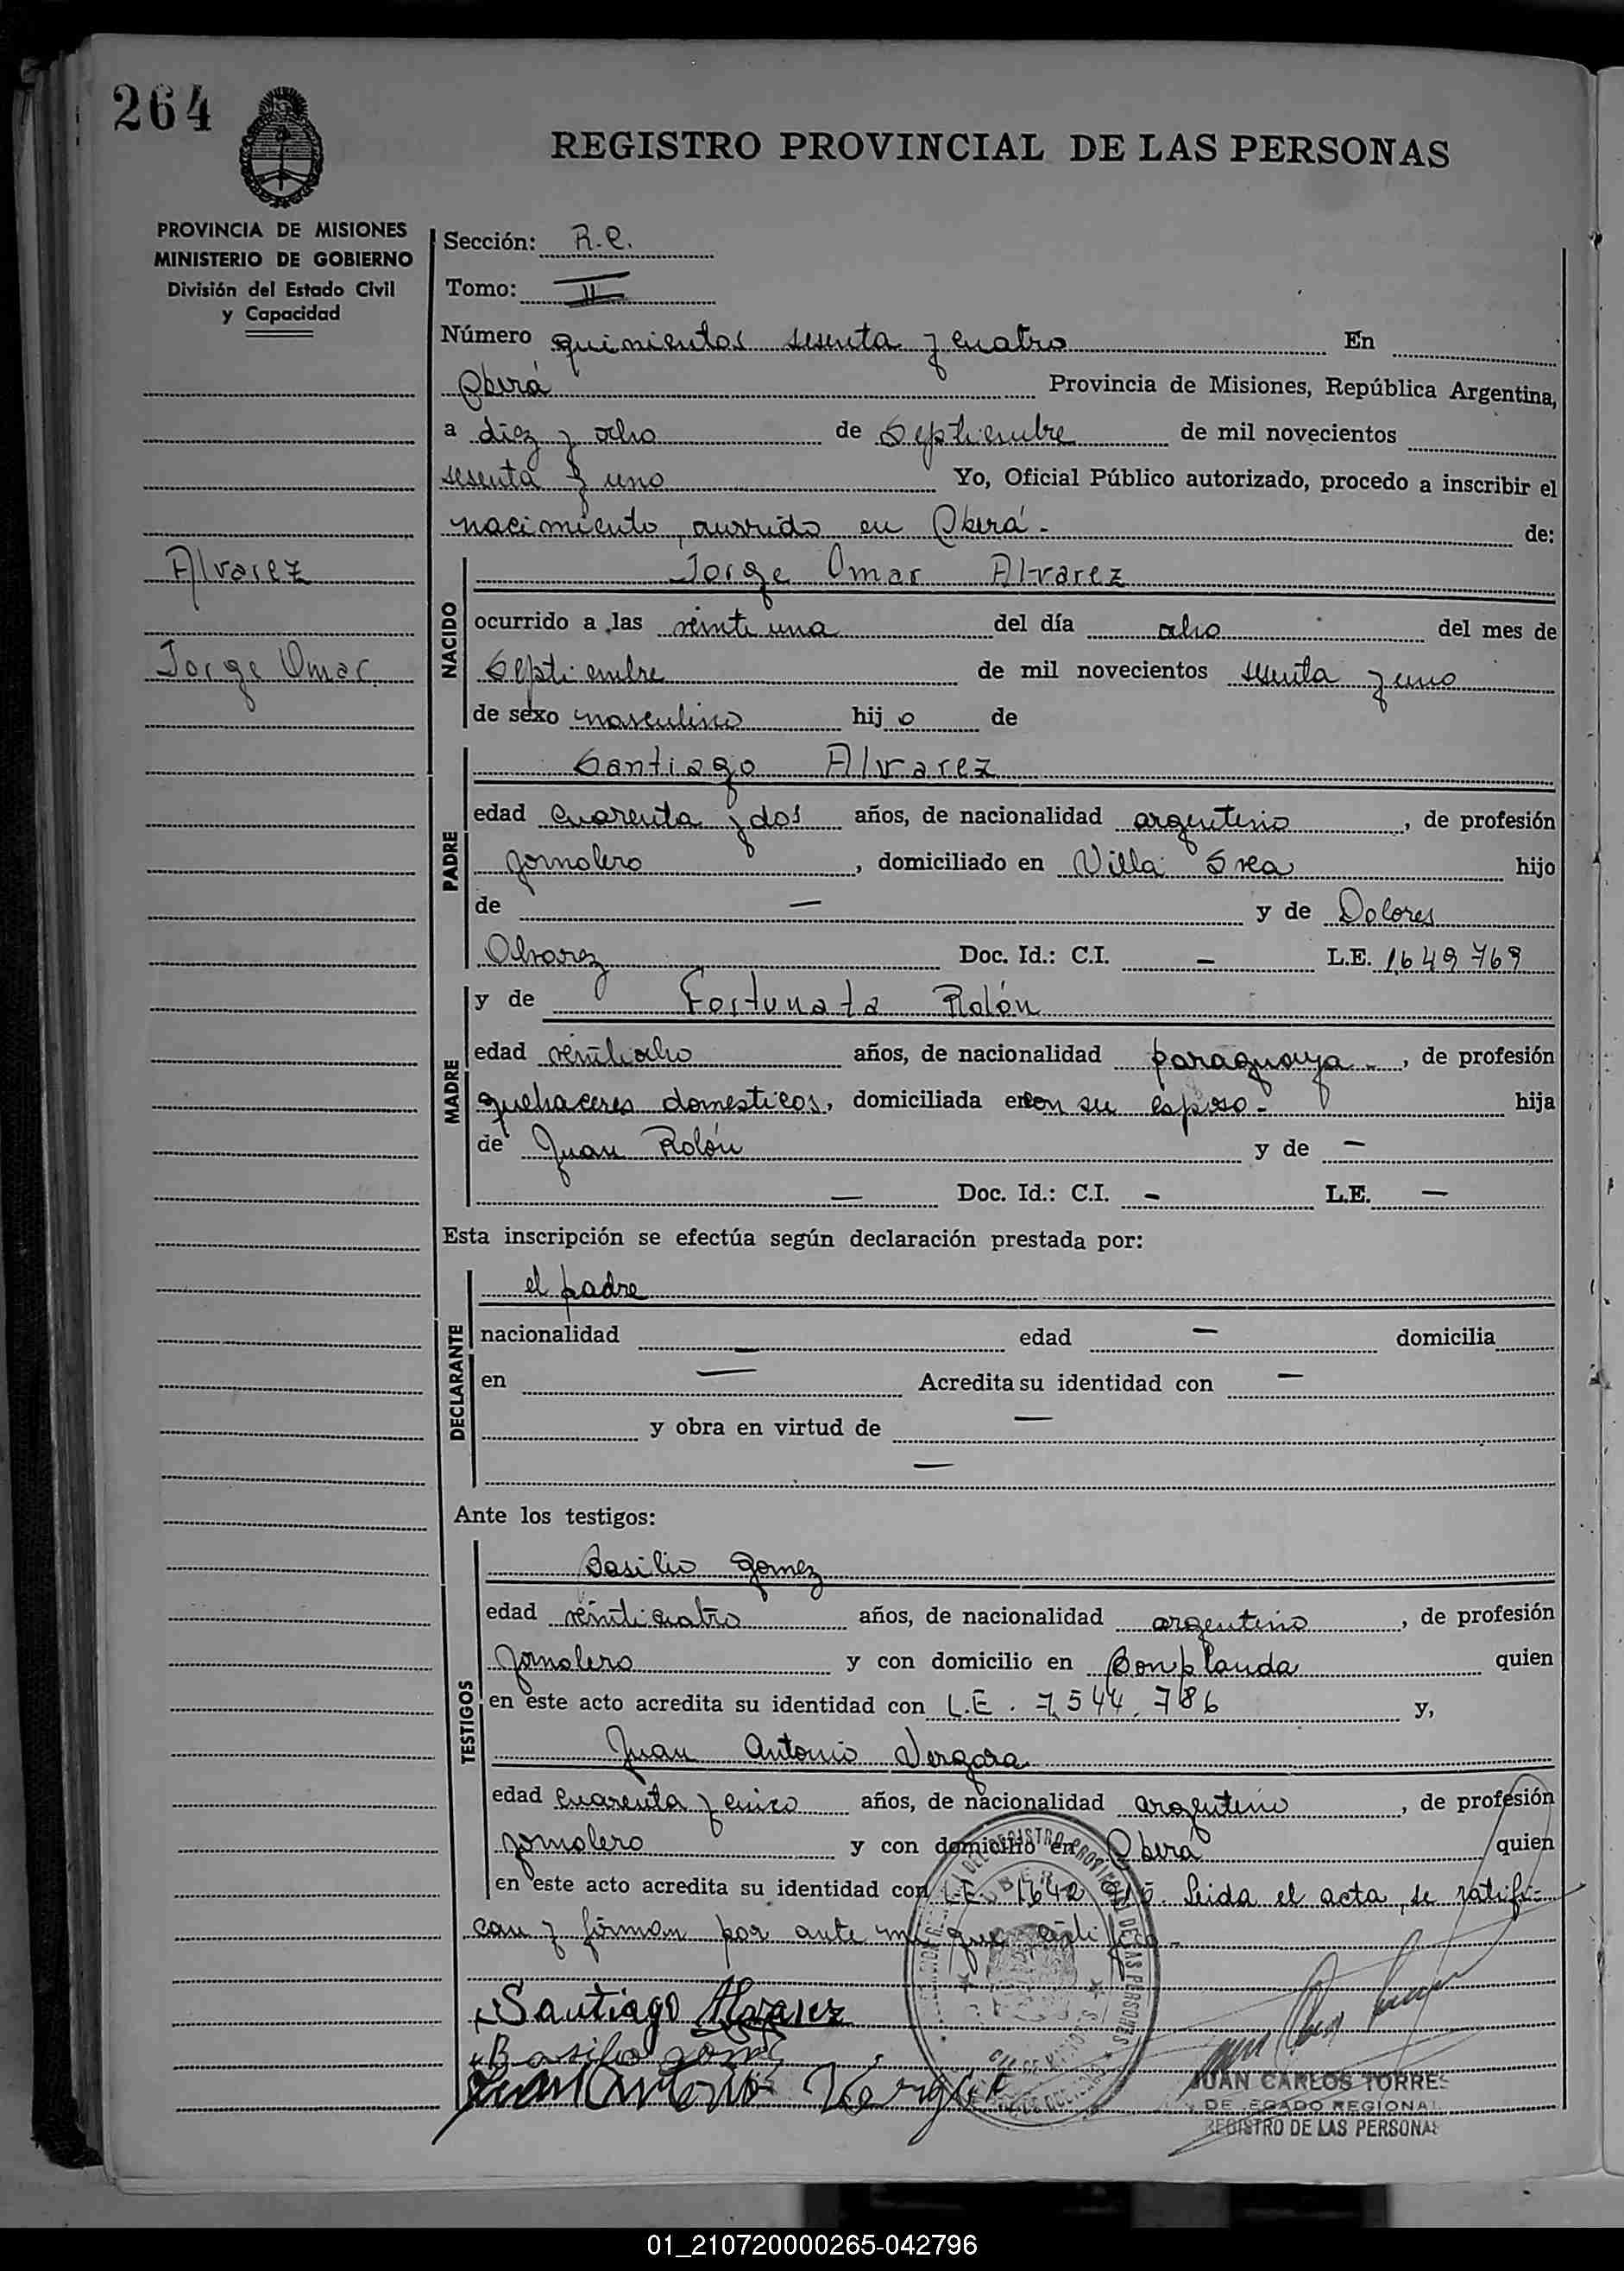 264
REGISTRO PROVINCIAL DE LAS PERSONAS
PROVINCIA DE MISIONES
MINISTERIO DE GOBIERNO
División del Estado Civil
y Capacidad
Alvarez
Jorge Omar
Sección: R.C.
Tomo: II
Número quinientos sesenta y cuatro En
Oberá Provincia de Misiones, República Argentina,
a diez y ocho de Septiembre de mil novecientos
sesenta y uno Yo, Oficial Público autorizado, procedo a inscribir el
nacimiento, ocurrido en Oberá - de:
NACIDO
Jorge Omar Alvarez
ocurrido a las veinte una del día ocho del mes de
Septiembre de mil novecientos sesenta y uno
de sexo masculino hijo de
PADRE
Santiago Alvarez
edad cuarenta y dos años, de nacionalidad argentino, de profesión
jornalero, domiciliado en Villa Svea hijo
de — y de Dolores
Alvarez Doc. Id.: C.I. — L.E. 1649769
MADRE
y de Fortunata Rolón
edad veintiocho años, de nacionalidad paraguaya -, de profesión
quehaceres domesticos, domiciliada en con su esposo - hija
de Juan Rolón y de —
— Doc. Id.: C.I. — L.E. —
Esta inscripción se efectúa según declaración prestada por:
DECLARANTE
el padre
nacionalidad — edad — domicilia
en — Acredita su identidad con —
y obra en virtud de —
—
Ante los testigos:
TESTIGOS
Basilio Gomez
edad veinticuatro años, de nacionalidad argentino, de profesión
jornalero y con domicilio en Bonplanda quien
en este acto acredita su identidad con L.E. 7.544.786 y,
Juan Antonio Vergara
edad cuarenta y cinco años, de nacionalidad argentino, de profesión
jornalero y con domicilio en Oberá quien
en este acto acredita su identidad con L.E. 1642 Leida el acta, se ratifi-
can y firman por ante mi que
Santiago Alvarez
Basilio gom
Juan Antonio Vergara
JUAN CARLOS TORRES
DELEGADO REGIONAL
REGISTRO DE LAS PERSONAS
01_210720000265-042796